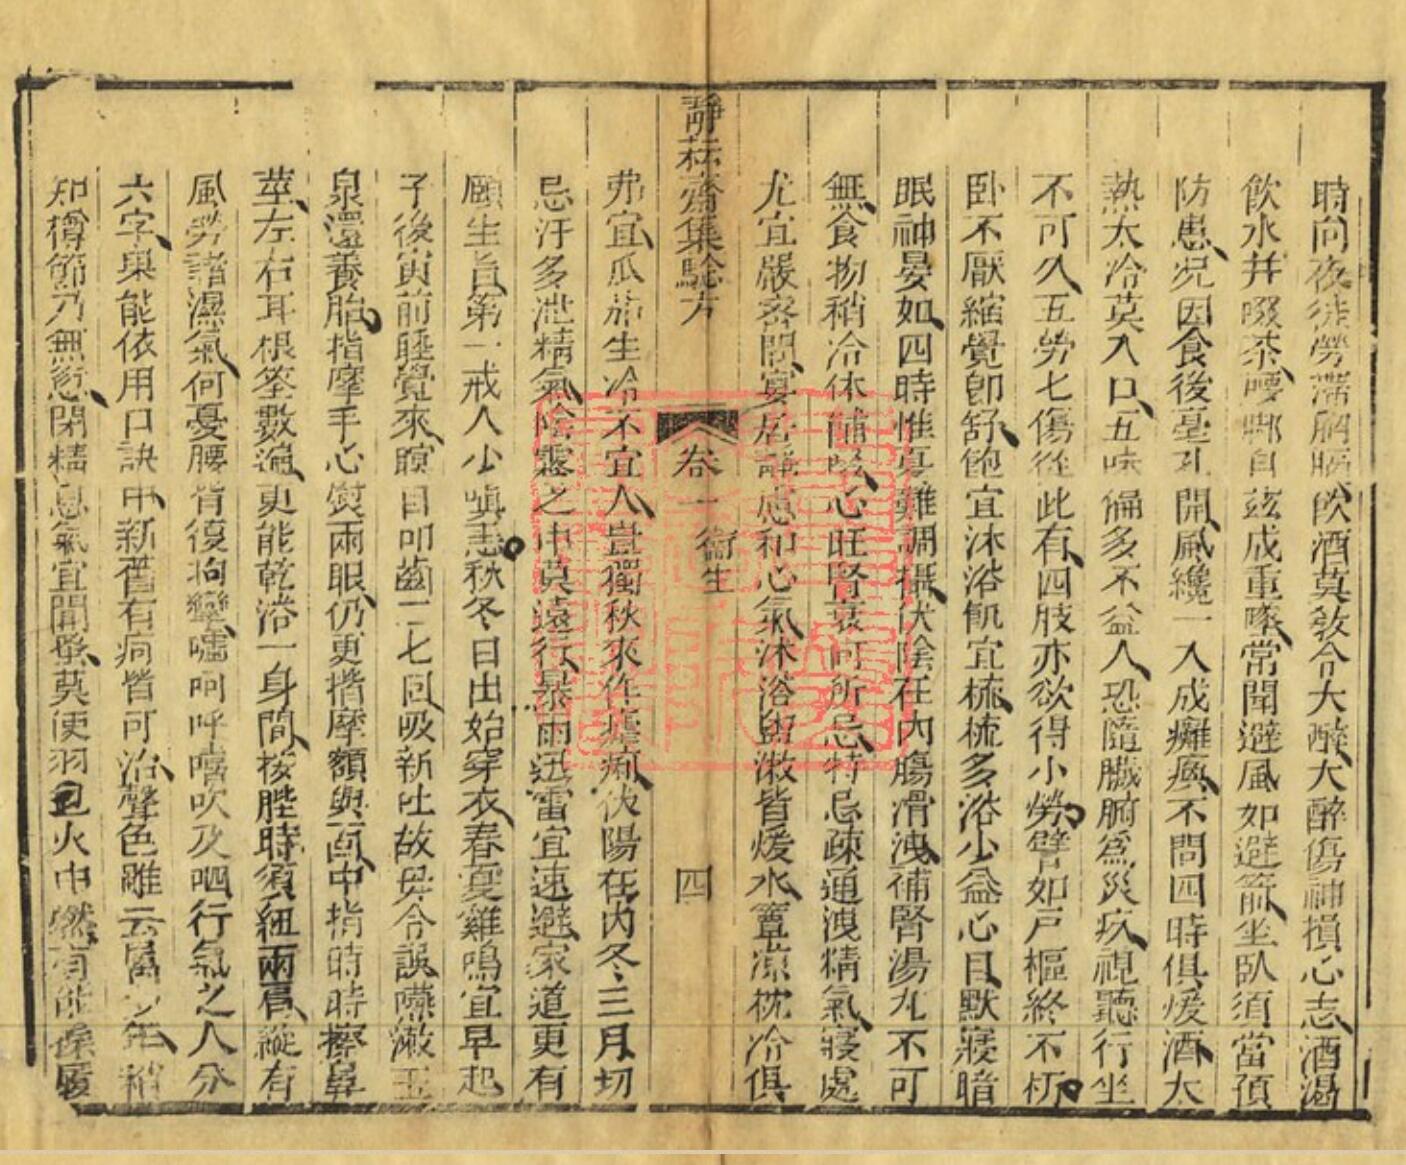 時向夜徒勞滯胸膈飲酒莫敎令大醉大醉傷神損心志酒渴
飲水幷啜茶腰脚自玆成重墜常聞避風如避箭坐臥須當預
防患况因食後毫孔開風纔一入成癱瘓不問四時俱煖酒太
熱太冷莫入口五味偏多不益人恐隨臟腑爲災疚視聽行坐
不可久五勞七傷從此有四肢亦欲得小勞譬如戶樞終不朽
卧不厭縮覺卽舒飽宜沐浴飢宜梳梳多浴少益心目默寢暗
眠神晏如四時惟夏難調攝伏陰在內腸滑洩補腎湯丸不可
無食物稍冷休餔啜心旺腎衰何所忌特忌疎通洩精氣寢處
尤宜嚴密閒宴居靜慮和心氣沐浴盥漱皆煖水簟凉枕冷俱
靜耘齋集騐方 卷一 衞生 四
弗宜瓜茄生冷不宜人豈獨秋來作瘧痢伏陽在內冬三月切
忌汗多泄精氣陰霧之中莫遠行暴雨迅雷宜速避家道更有
頤生旨第一戒人少嗔恚秋冬日出始穿衣春夏雞鳴宜早起
子後寅前睡覺來瞑目叩齒二七回吸新吐故毋令誤嚥漱玉
泉還養胎指摩手心熨兩眼仍更揩摩額與面中指時時擦鼻
莖左右耳根筌數遍更能乾浴一身間按䏶時須紐兩肩縱有
風勞諸濕氣何憂腰背復拘攣噓呵呼嘻吹及呬行氣之人分
六字果能依用口訣中新舊有疴皆可治聲色雖云屬少年稍
知樽節乃無愆閉精息氣宜聞蚤莫使羽苞火中燃有能操履